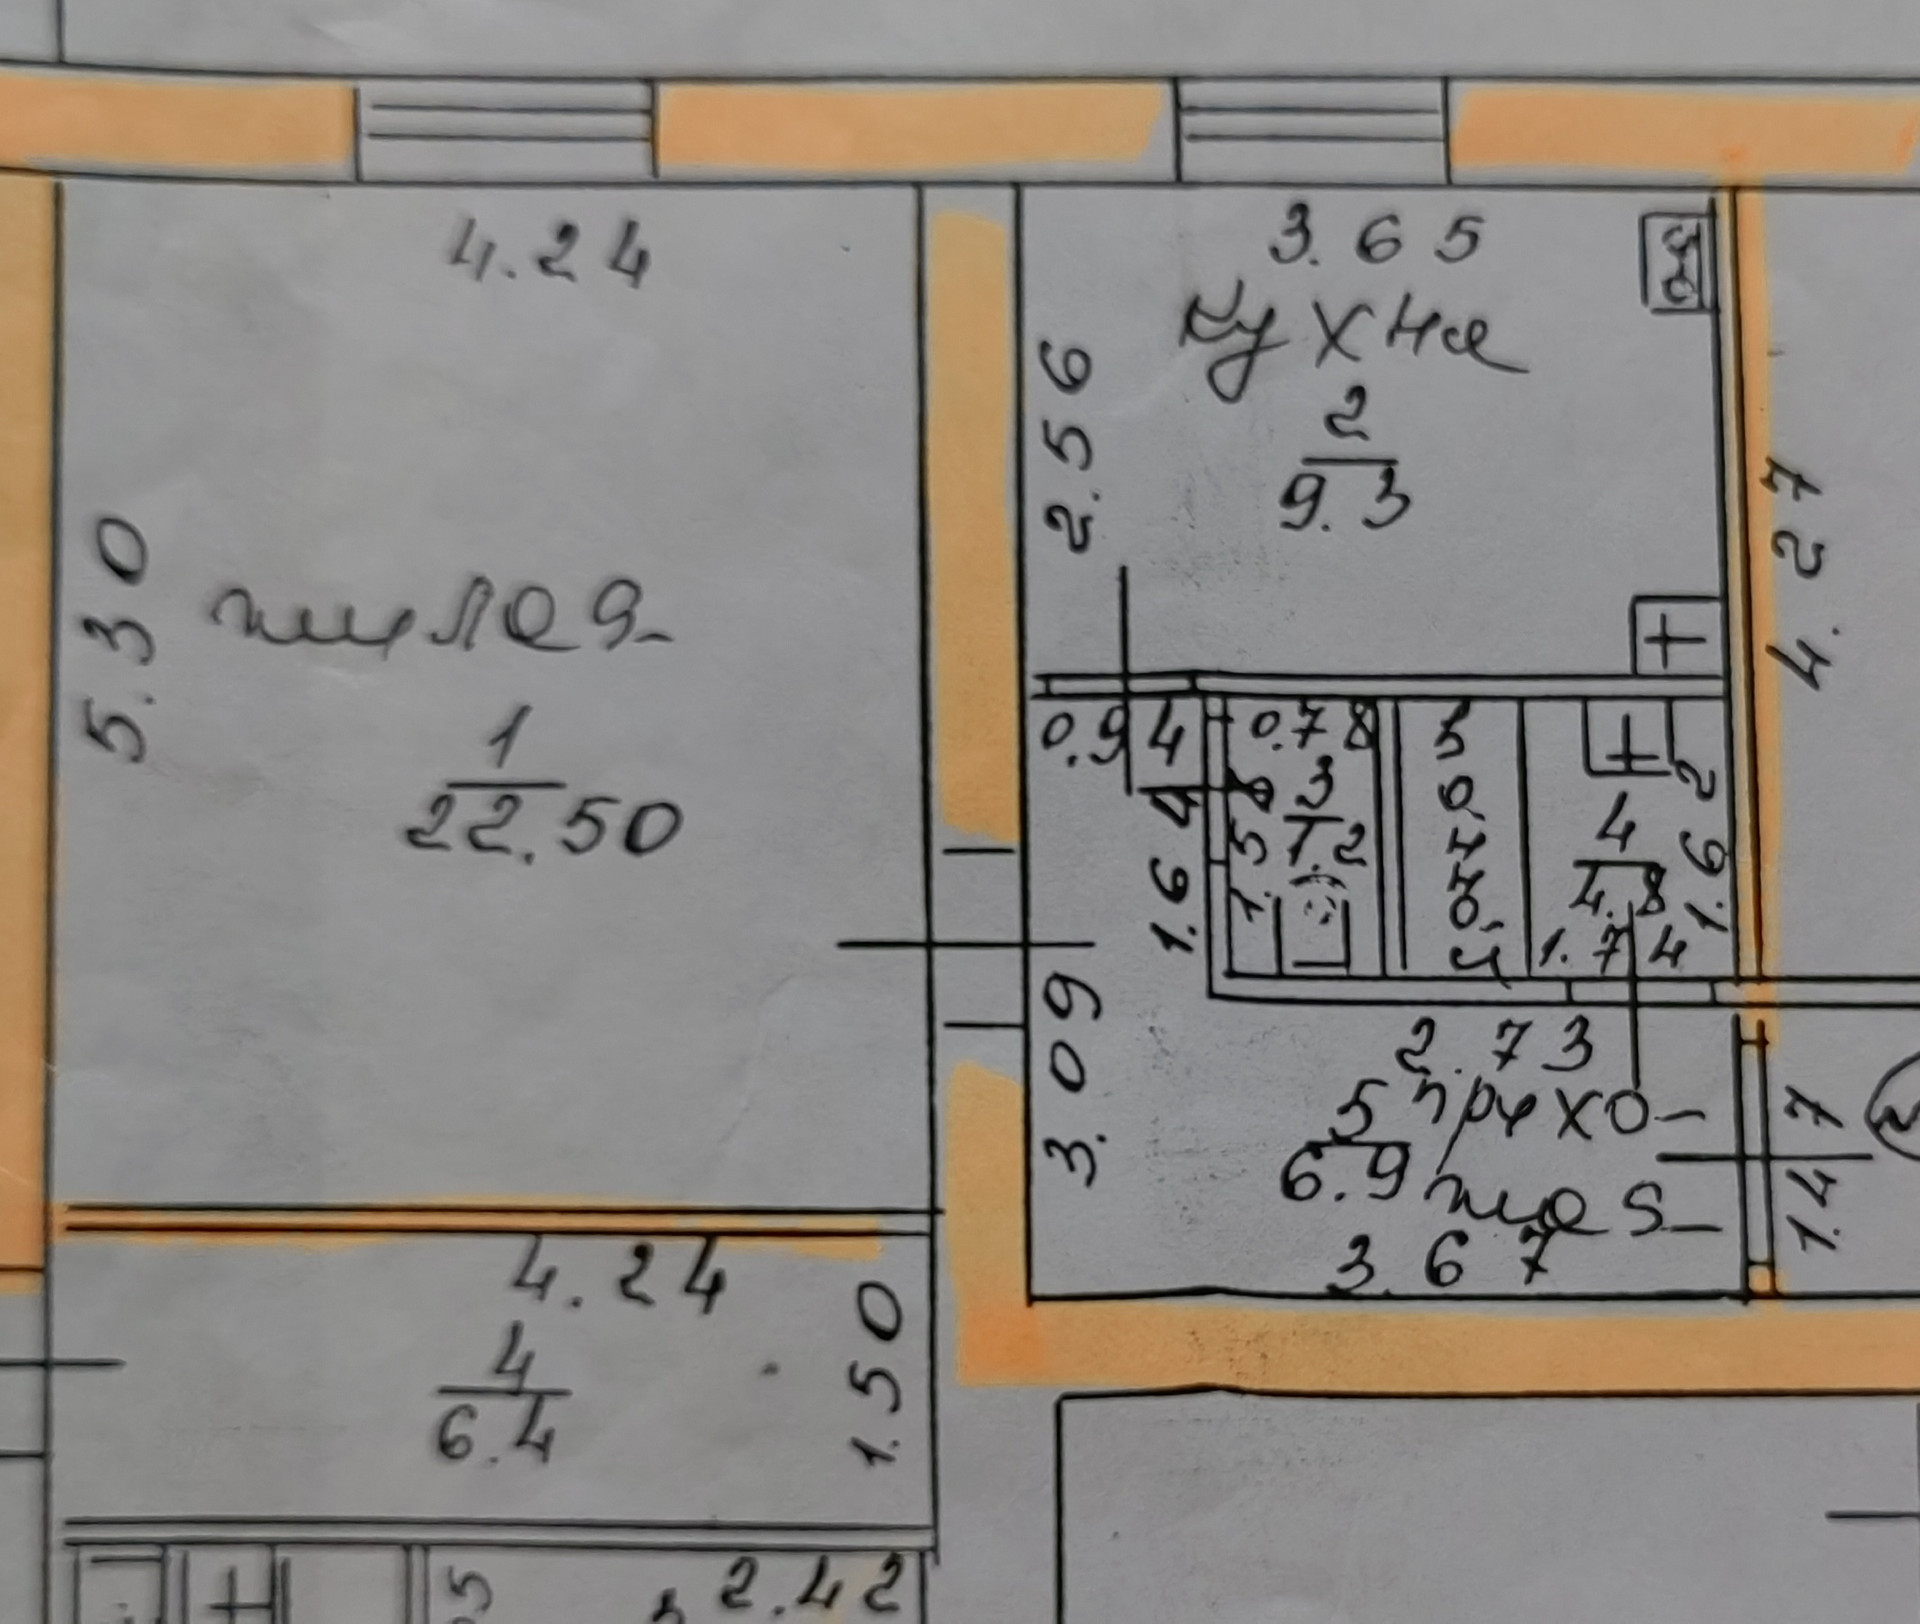 4.24
5.30
жилая
1
22.50
3.65
кухня
2
9.3
2.56
4.27
0.94
1.64
0.78
1.58
3
1.2
4
4.8
1.74
2.73
3.09
5
6.9
прихо-
жая
3.67
1.47
4.24
4
6.4
1.50
2.42